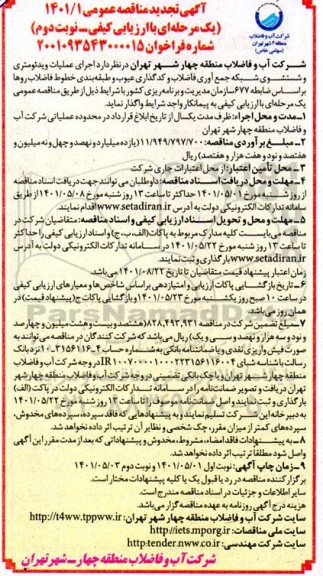 آگهی تجدید مناقصه عمومی ۱۴۰۱/۱
(یک مرحله‌ای با ارزیابی کیفی – نوبت دوم)
شماره فراخوان ۲۰۰۱۰۹۳۵۴۳۰۰۰۰۱۵
شرکت آب و فاضلاب
منطقه ۴ شهر تهران
(سهامی خاص)
شرکت آب و فاضلاب منطقه چهار شهر تهران در نظر دارد اجرای عملیات ویدئومتری
و شستشوی شبکه جمع آوری فاضلاب و کدگذاری عیوب و طبقه‌بندی خطوط فاضلاب‌روها
بر اساس ضابطه ۶۷۷ سازمان مدیریت و برنامه‌ریزی کشور با شرایط ذیل از طریق مناقصه عمومی
یک مرحله‌ای با ارزیابی کیفی به پیمانکار واجد شرایط واگذار نماید.
۱- مدت و محل اجراء: ظرف مدت یکسال از تاریخ ابلاغ قرارداد در محدوده عملیاتی شرکت آب
و فاضلاب منطقه چهار شهر تهران
۲- مبلغ برآوردی مناقصه: ۱۱/۹۴۹/۷۹۷/۷۰۰ (یازده میلیارد و نهصد و چهل و نه میلیون و
هفتصد و نود و هفت هزار و هفتصد) ریال
۳- محل تأمین اعتبار: از محل اعتبارات جاری شرکت
۴- مهلت و محل دریافت اسناد مناقصه: داوطلبان می‌توانند جهت دریافت اسناد مناقصه
از روز شنبه مورخ ۱۴۰۱/۰۵/۰۱ حداکثر تا ساعت ۱۳ روز شنبه مورخ ۱۴۰۱/۰۵/۰۸ از طریق
سامانه تدارکات الکترونیکی دولت به آدرس www.setadiran.ir اقدام نمایند.
۵- مهلت و محل و تحویل اسناد ارزیابی کیفی و اسناد مناقصه: متقاضیان شرکت در
مناقصه می‌بایست کلیه مدارک مربوط به پاکات (الف، ب، ج) و اسناد ارزیابی کیفی را حداکثر
تا ساعت ۱۳ روز شنبه مورخ ۱۴۰۱/۰۵/۲۲ در سامانه تدارکات الکترونیکی دولت به آدرس
www.setadiran.ir بارگذاری و ثبت نمایند.
زمان اعتبار پیشنهاد قیمت متقاضیان تا تاریخ ۱۴۰۱/۰۸/۲۲ می‌باشد.
۶- تاریخ بازگشایی پاکات ارزیابی و امتیازدهی بر اساس شاخص‌ها و معیارهای ارزیابی کیفی
در ساعت ۱۰ صبح روز یکشنبه مورخ ۱۴۰۱/۰۵/۲۳ و بازگشایی پاکات ج (پیشنهاد قیمت) در
همان روز می‌باشد.
۷- مبلغ تضمین شرکت در مناقصه ۸۲۸,۴۹۳,۹۳۱ (هشتصد و بیست و هشت میلیون و چهارصد
و نود و سه هزار و نهصد و سی و یک) ریال می‌باشد که شرکت کنندگان در مناقصه می‌توانند به
صورت فیش واریزی نقدی و یا ضمانتنامه بانکی به شماره حساب نزد بانک
رسالت با شناسه شبا در وجه شرکت آب و فاضلاب
منطقه چهار شهر تهران و یا چک بانکی تضمینی در وجه شرکت آب و فاضلاب منطقه چهار شهر
تهران دریافت و تصویر ضمانت‌نامه را در سامانه تدارکات الکترونیکی دولت در پاکت (الف)
بارگذاری و ثبت نمایند و اصل ضمانت‌نامه مربوطه را تا ساعت ۱۳ روز شنبه مورخ ۱۴۰۱/۰۵/۲۲
به دبیرخانه این شرکت تسلیم نمایند و به پیشنهادهایی که فاقد سپرده، سپرده‌های مخدوش،
سپرده‌های کمتر از میزان مقرر، چک شخصی و نظایر آن ترتیب اثر داده نخواهد شد.
۸- به پیشنهادات فاقد امضاء، مشروط، مخدوش و پیشنهاداتی که بعد از مدت مقرر این آگهی
واصل شود مطلقا ترتیب اثر داده نخواهد شد.
۹- زمان چاپ آگهی: نوبت اول ۱۴۰۱/۰۵/۰۱ و نوبت دوم ۱۴۰۱/۰۵/۰۲
برگزارکننده مناقصه در رد یا قبول یک یا کلیه پیشنهادات مختار است.
سایر اطلاعات و جزئیات در اسناد مناقصه مندرج است.
هزینه درج آگهی روزنامه به عهده مناقصه گزار می‌باشد.
سایت شرکت آب و فاضلاب منطقه چهار شهر تهران: http://t4ww.tppww.ir
سایت ملی مناقصات: http://iets.mporg.ir
سایت شرکت مهندسی: http://tender.nww.co.ir
شرکت آب و فاضلاب منطقه چهار – شهر تهران